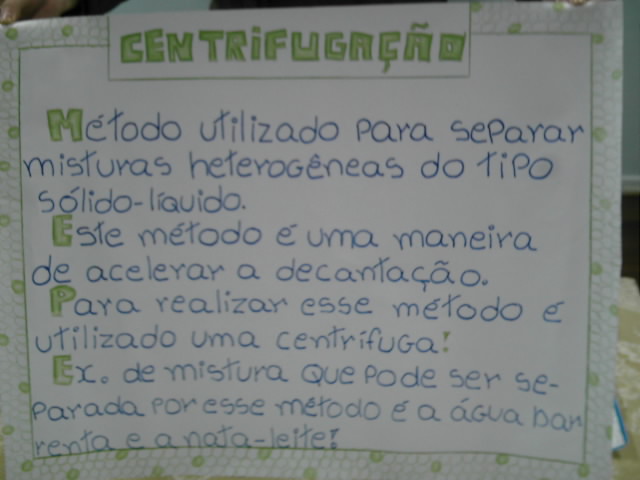 CENTRIFUGAÇÃO
Método utilizado para separar
misturas heterogêneas do tipo
sólido-líquido.
Este método é uma maneira
de acelerar a decantação.
Para realizar esse método é
utilizado uma centrífuga!
Ex. de mistura que pode ser se-
parada por esse método é a água bar
renta e a nata-leite!